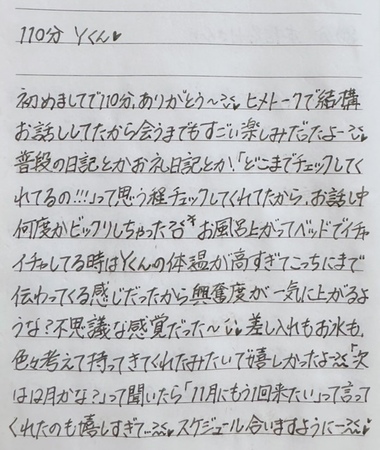 110分 Yくん♥
初めましてで110分、ありがとう〜♥ ヒメトークで結構
お話ししてたから会うまでもすごい楽しみだったよー
普段の日記とかお礼日記とか、「どこまでチェックしてく
れてるの!!!」って思う程チェックしてくれてたから、お話し中
何度かビックリしちゃった お風呂上がってベッドでイチャ
イチャしてる時はYくんの体温が高すぎてこっちにまで
伝わってくる感じだったから興奮度が一気に上がるよ
うな?不思議な感覚だった〜♥ 差し入れもお水も、
色々考えて持ってきてくれたみたいで嬉しかったよ〜♥「次
は12月かな?」って聞いたら「11月にもう1回来たい」って言って
くれたのも嬉しすぎて…♥ スケジュール合いますようにー♥